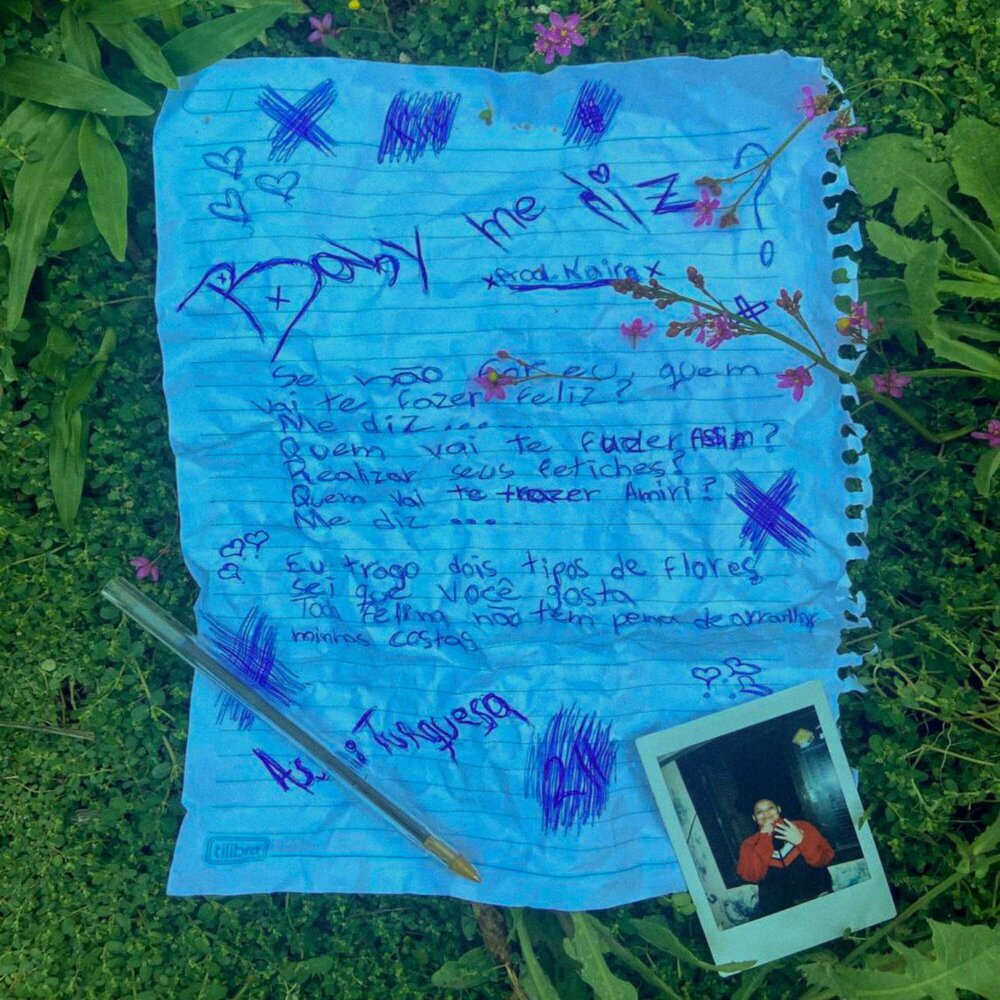 Baby me diz?
x Prod. Kaire x
Se não for eu, quem
vai te fazer feliz?
Me diz...
Quem vai te fuder Assim?
Realizar seus fetiches?
Quem vai te trazer Amiri?
Me diz ...
Eu trago dois tipos de flores
sei que você gosta
felina não tem pena de arranhar
minhas costas
Ass: Turquesa
tilibra